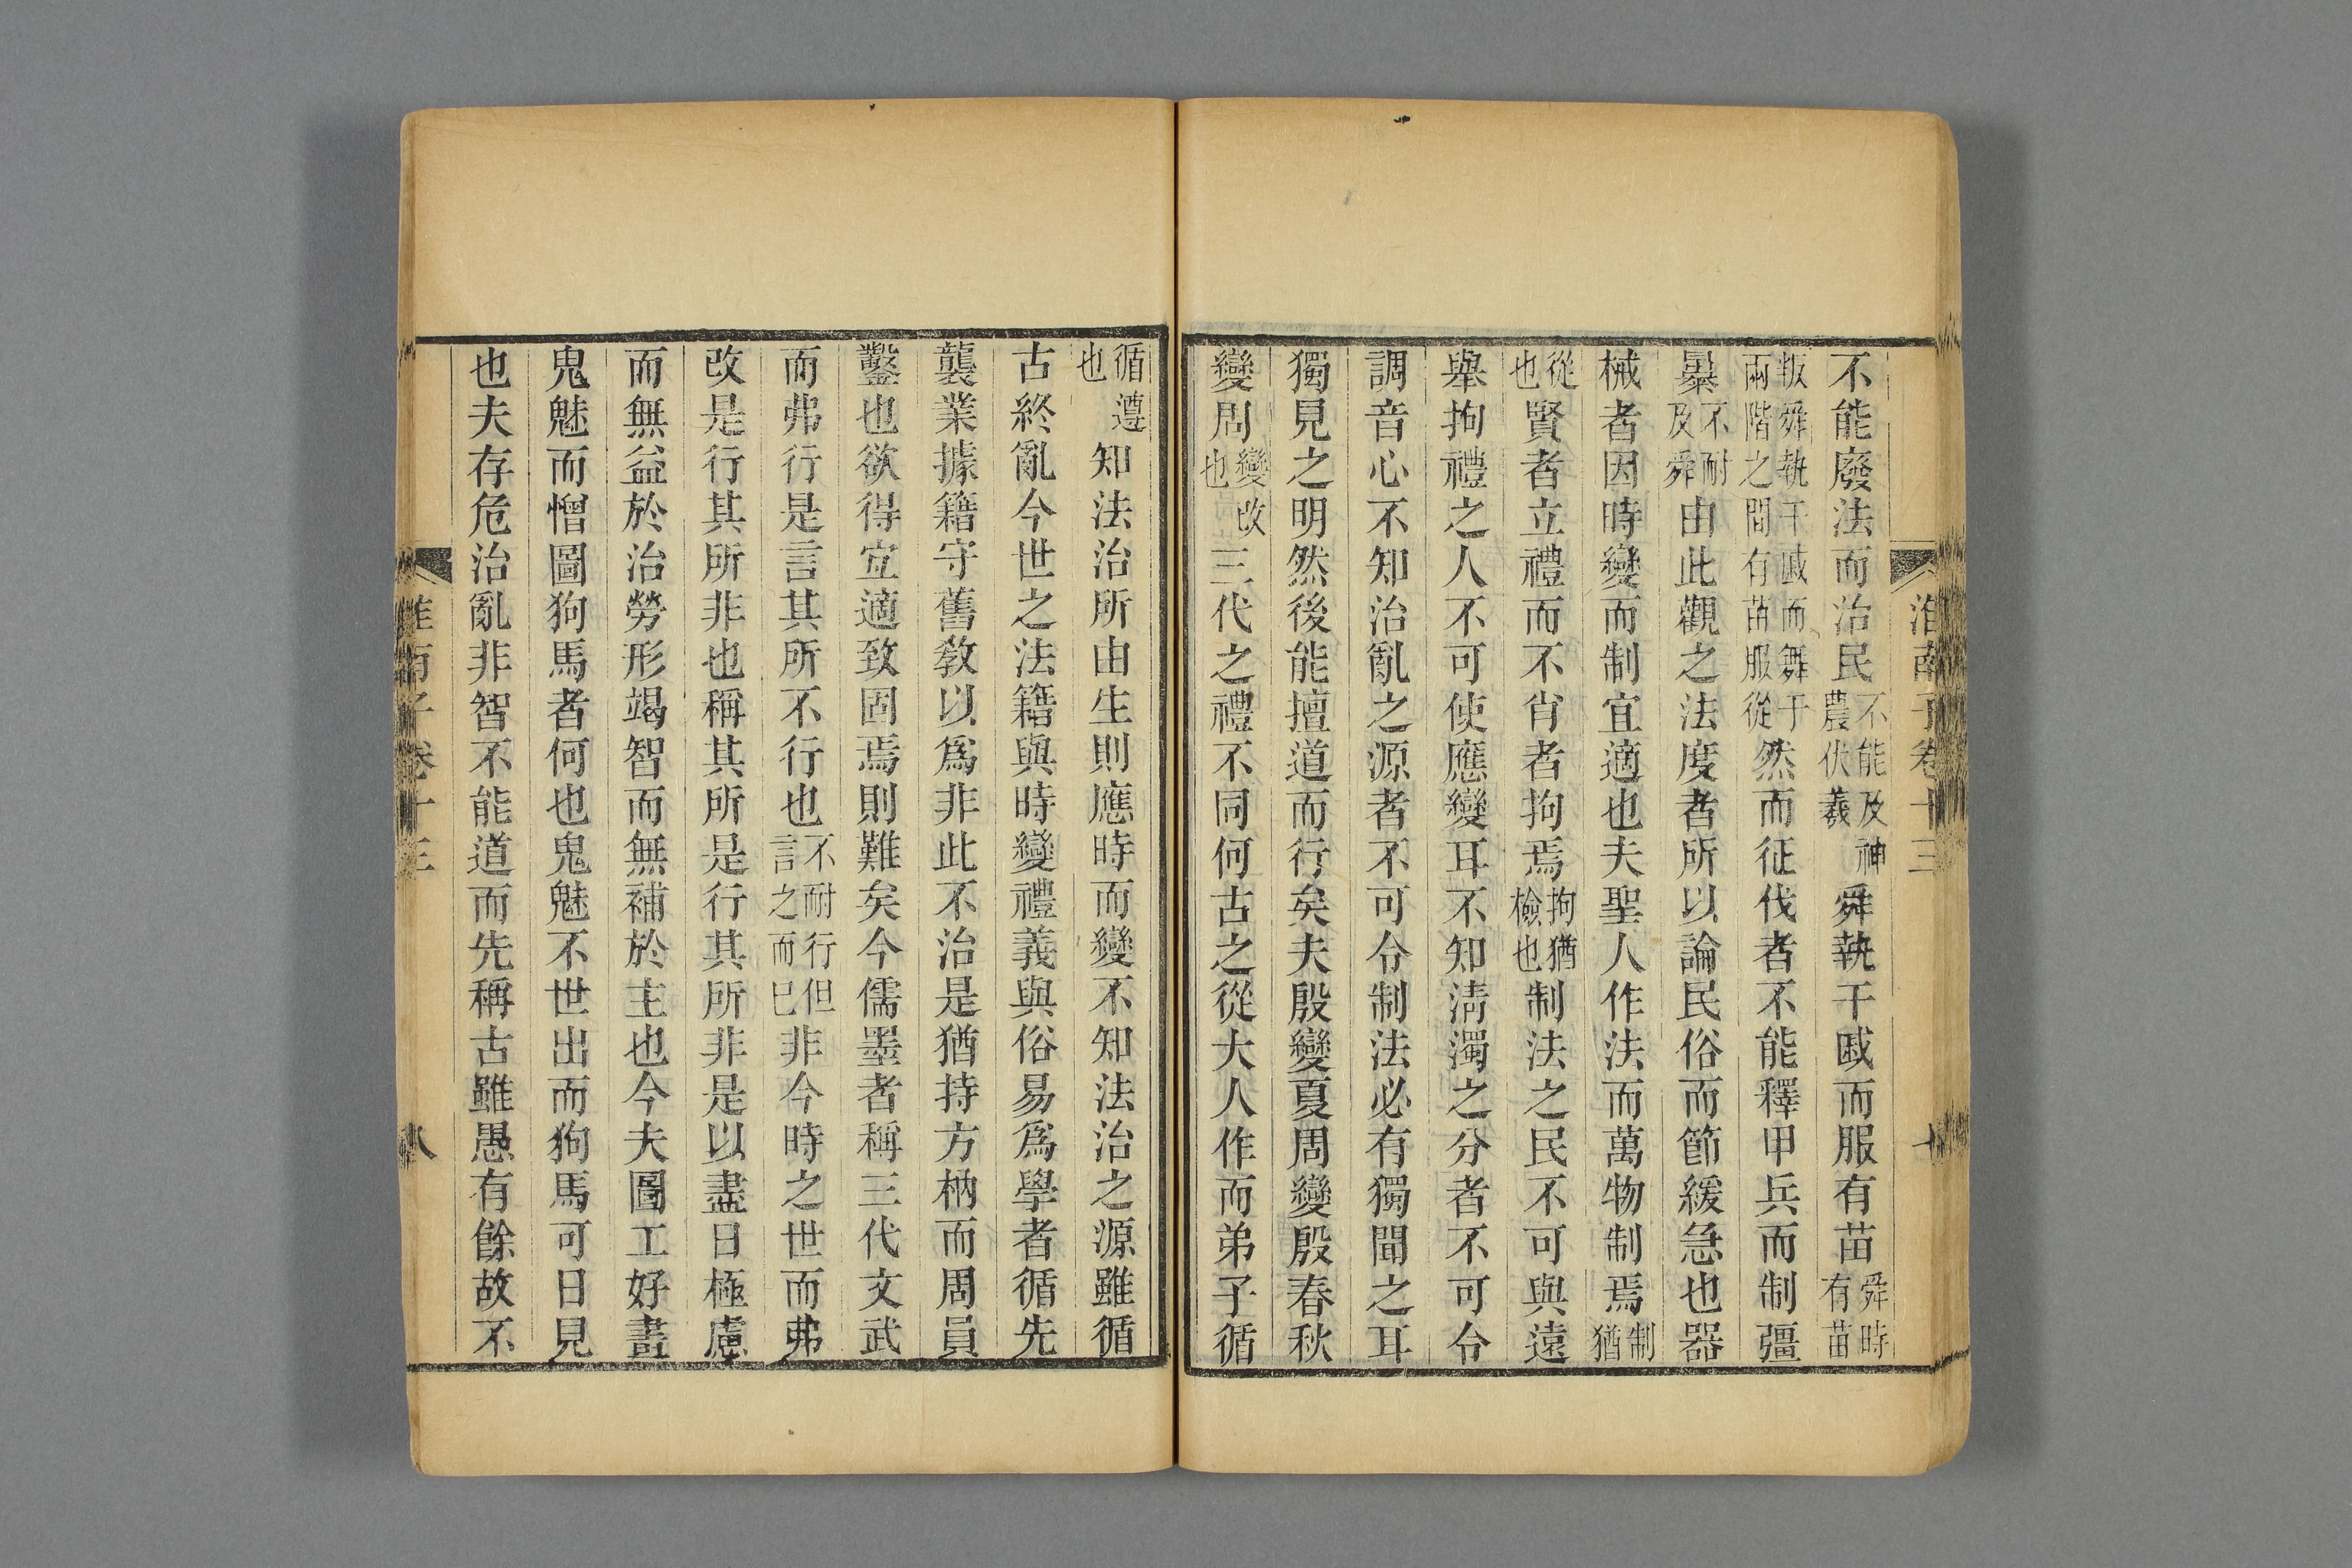 淮南子卷十三 七
不能廢法而治民不能及神農伏羲舜執干戚而服有苗舜時有苗
叛舜執干戚而舞于兩階之間有苗服從然而征伐者不能釋甲兵而制彊
暴不耐及舜由此觀之法度者所以論民俗而節緩急也器
械者因時變而制宜適也夫聖人作法而萬物制焉制猶
從也賢者立禮而不肖者拘焉拘猶檢也制法之民不可與遠
舉拘禮之人不可使應變耳不知淸濁之分者不可令
調音心不知治亂之源者不可令制法必有獨聞之耳
獨見之明然後能擅道而行矣夫殷變夏周變殷春秋
變周變改也三代之禮不同何古之從大人作而弟子循
循遵也知法治所由生則應時而變不知法治之源雖循
古終亂今世之法籍與時變禮義與俗易爲學者循先
襲業據籍守舊教以爲非此不治是猶持方枘而周員
鑿也欲得宜適致固焉則難矣今儒墨者稱三代文武
而弗行是言其所不行也不耐行但言之而巳非今時之世而弗
改是行其所非也稱其所是行其所非是以盡日極慮
而無益於治勞形竭智而無補於主也今夫圖工好畫
鬼魅而憎圖狗馬者何也鬼魅不世出而狗馬可日見
也夫存危治亂非智不能道而先稱古雖愚有餘故不
淮南子卷十三 八